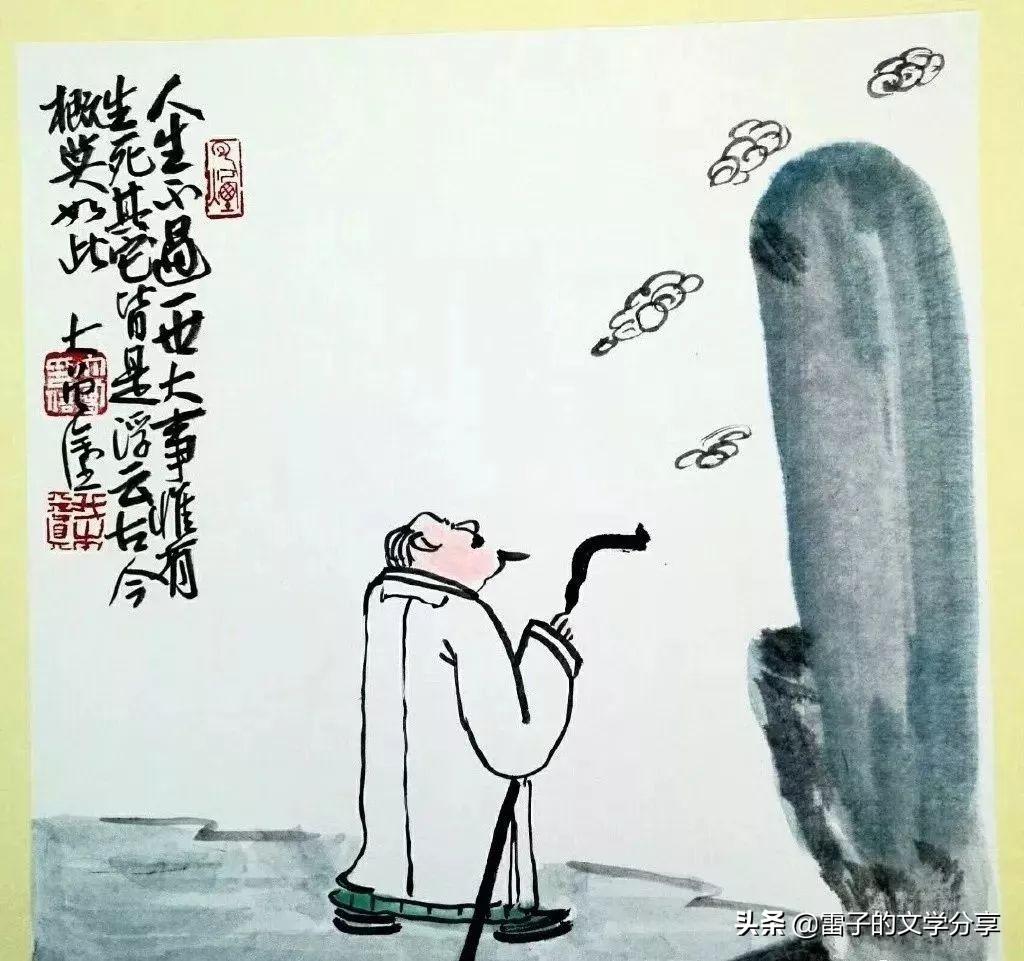 人生不过一世大事唯有
生死其它皆是浮云古今
概莫如此
头条 @雷子的文学分享